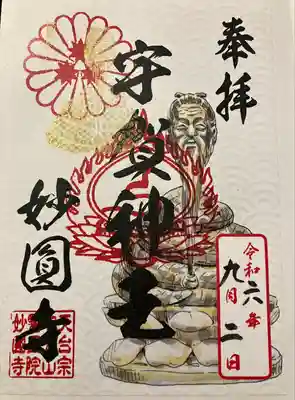 奉拝
宇賀神王
妙圓寺
令和六年
九月二日
天台宗
妙圓寺